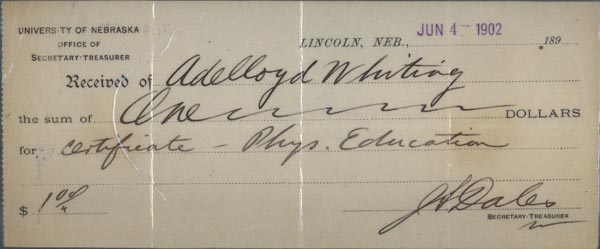 UNIVERSITY OF NEBRASKA
OFFICE OF
SECRETARY-TREASURER
LINCOLN, NEB., JUN 4 1902 189
Received of Adelloyd Whiting
the sum of One DOLLARS
for Certificate - Phys. Education
$ 1 00
J S Dales
SECRETARY-TREASURER